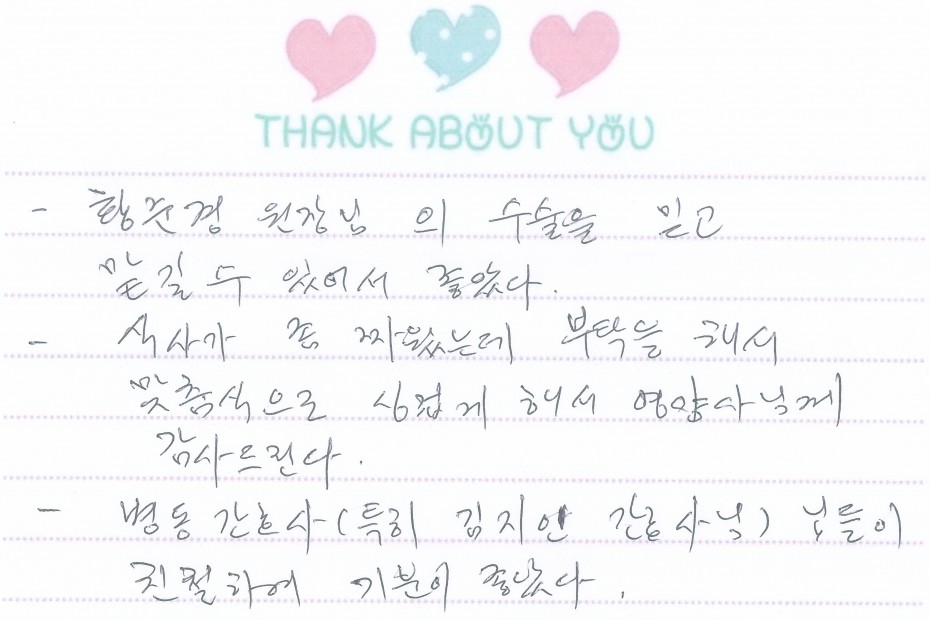 THANK ABOUT YOU
- 황준경 원장님 의 수술을 믿고
맡길 수 있어서 좋았다.
- 식사가 좀 짜웠는데 부탁을 해서
맞춤식으로 싱겁게 해서 영양사님께
감사드린다.
- 병동 간호사(특히 김지언 간호사님) 님들이
친절하여 기분이 좋았다.